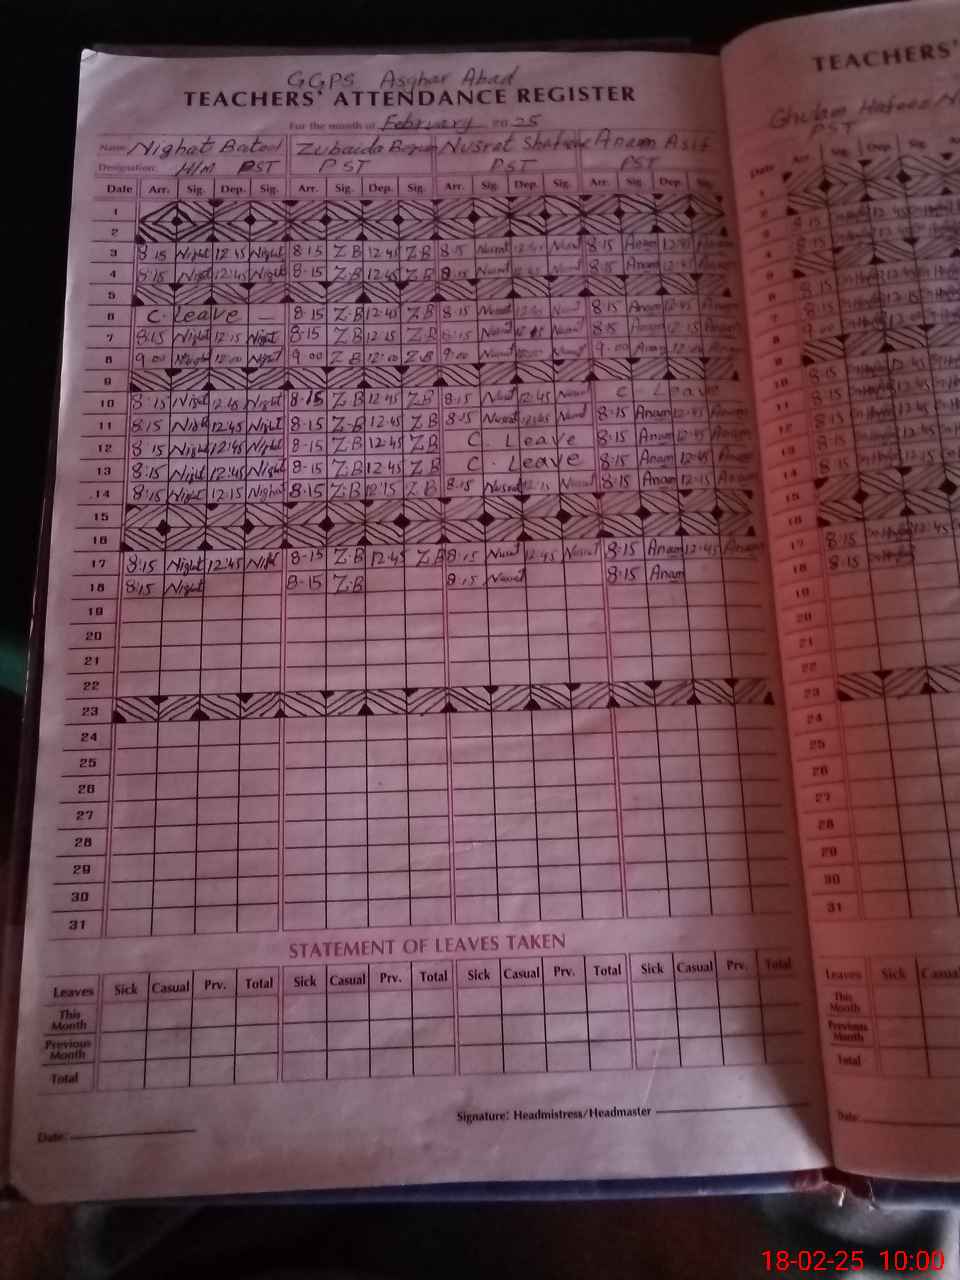 GGPS Asghar Abad
TEACHERS' ATTENDANCE REGISTER
For the month of February 2025
Name Nighat Batool Zubaida Begum Nusrat Shafique Anam Asif
Designation: H/M PST PST PST PST
Date Arr. Sig. Dep. Sig. Arr. Sig. Dep. Sig. Arr. Sig. Dep. Sig. Arr. Sig. Dep. Sig.
1
2
3 8.15 Night 12.45 Night 8.15 Z.B 12.45 Z.B 8.15 Nusrat 12.45 Nusrat 8.15 Anam 12.45 Anam
4 8.15 Night 12.45 Night 8.15 Z.B 12.45 Z.B 8.15 Nusrat 12.45 Nusrat 8.15 Anam 12.45 Anam
5
6 C. Leave — 8.15 Z.B 12.45 Z.B 8.15 Nusrat 12.45 Nusrat 8.15 Anam 12.45 Anam
7 8.15 Night 12.15 Night 8.15 Z.B 12.15 Z.B 8.15 Nusrat 12.15 Nusrat 8.15 Anam 12.15 Anam
8 9.00 Night 12.00 Night 9.00 Z.B 12.00 Z.B 9.00 Nusrat 12.00 Nusrat 9.00 Anam 12.00 Anam
9
10 8.15 Night 12.45 Night 8.15 Z.B 12.45 Z.B 8.15 Nusrat 12.45 Nusrat C Leave
11 8.15 Night 12.45 Night 8.15 Z.B 12.45 Z.B 8.15 Nusrat 12.45 Nusrat 8.15 Anam 12.45 Anam
12 8.15 Night 12.45 Night 8.15 Z.B 12.45 Z.B C. Leave 8.15 Anam 12.45 Anam
13 8.15 Night 12.45 Night 8.15 Z.B 12.45 Z.B C. Leave 8.15 Anam 12.45 Anam
14 8.15 Night 12.15 Night 8.15 Z.B 12.15 Z.B 8.15 Nusrat 12.15 Nusrat 8.15 Anam 12.15 Anam
15
16
17 8.15 Night 12.45 Night 8.15 Z.B 12.45 Z.B 8.15 Nusrat 12.45 Nusrat 8.15 Anam 12.45 Anam
18 8.15 Night 8.15 Z.B 8.15 Nusrat 8.15 Anam
19
20
21
22
23
24
25
26
27
28
29
30
31
STATEMENT OF LEAVES TAKEN
Leaves Sick Casual Prv. Total Sick Casual Prv. Total Sick Casual Prv. Total Sick Casual Prv. Total
This Month
Previous Month
Total
Signature: Headmistress/Headmaster
Date:
TEACHERS'
Ghulam Hafeez
PST
Date Arr. Sig. Dep. Sig.
1
2
3 8.15 12.45
4 8.15
5
6 8.15 12.45
7 8.15 12.15
8 9.00
9
10 8.15 12.45
11 8.15 12.45
12 8.15 12.45
13 8.15 12.45
14 8.15
15
16
17 8.15 12.45
18 8.15
19
20
21
22
23
24
25
26
27
28
29
30
31
Leaves Sick Casual
This Month
Previous Month
Total
Date:
18-02-25 10:00